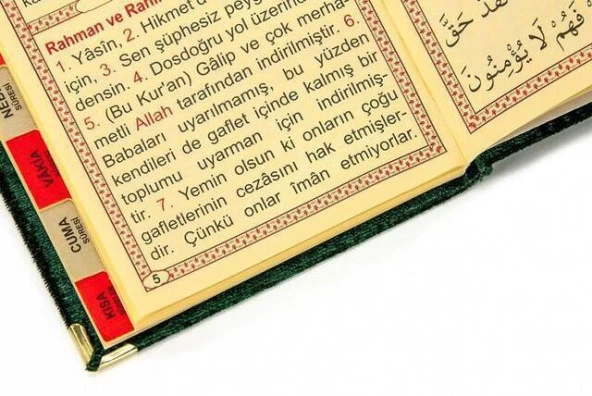 Rahman ve Rahî
1. Yâsîn, 2. Hikmet
için, 3. Sen şüphesiz
densin. 4. Dosdoğru yol üzerinde
5. (Bu Kur'an) Gâlip ve çok merha-
metli Allah tarafından indirilmiştir. 6.
Babaları uyarılmamış, bu yüzden
kendileri de gaflet içinde kalmış bir
toplumu uyarman için indirilmiş-
tir. 7. Yemin olsun ki onların çoğu
gafletlerinin cezâsını hak etmişler-
dir. Çünkü onlar îmân etmiyorlar.
5
حَقَّ
فَهُمْ لَا يُؤْمِنُونَ
SÛRESİ
VÂKIA
CUMA
SÛRESİ
KISA